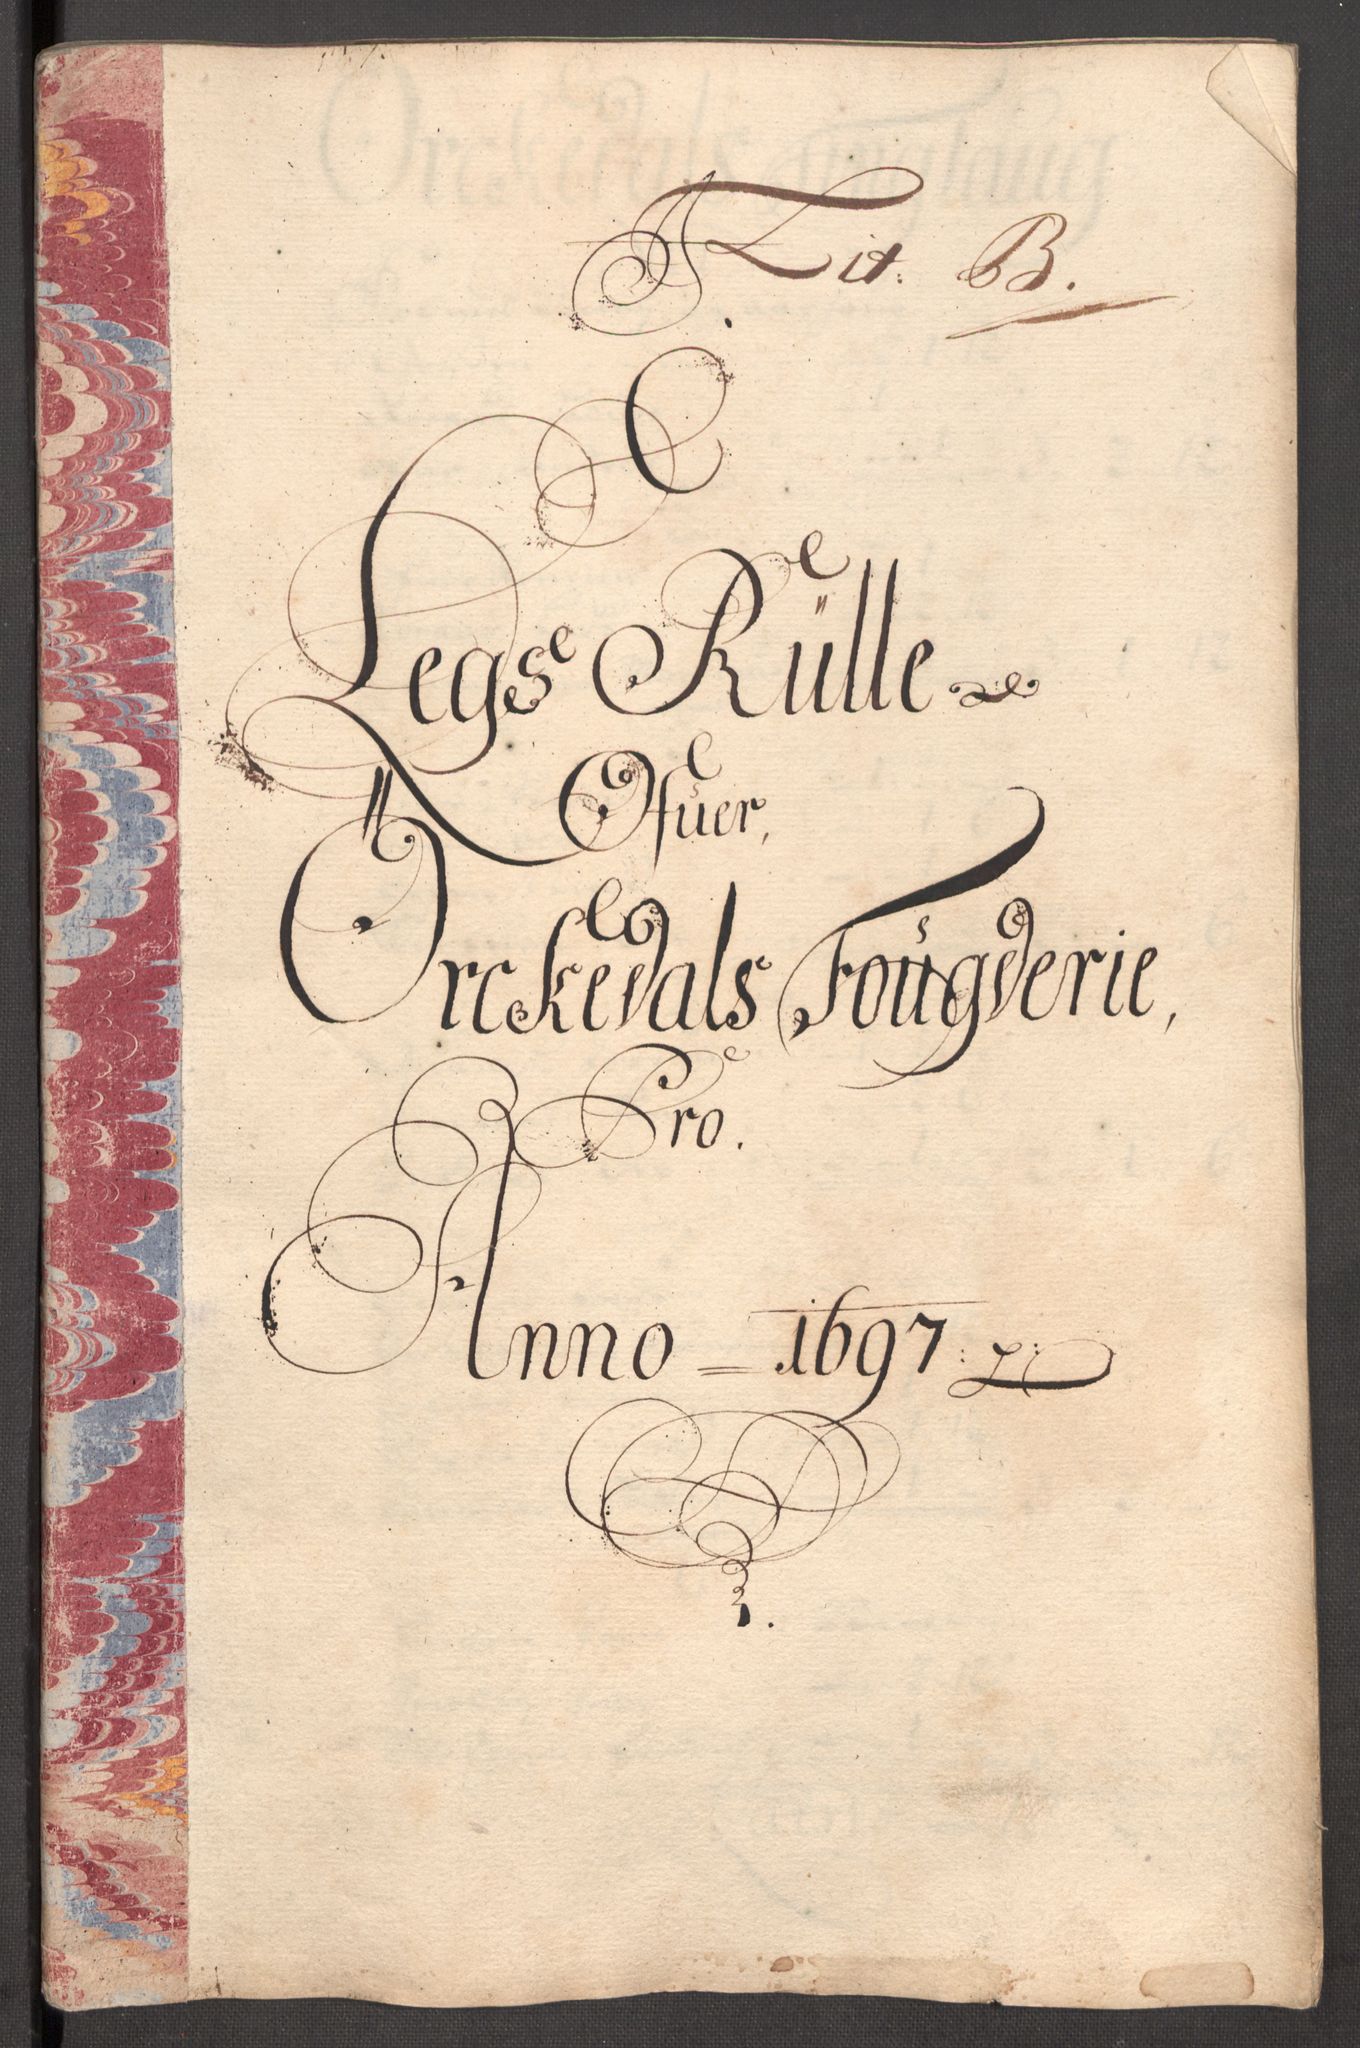 Lit. B.
Legs Rülle
Ofuer,
Orckedals Fougderie,
Pro.
Anno = 1697